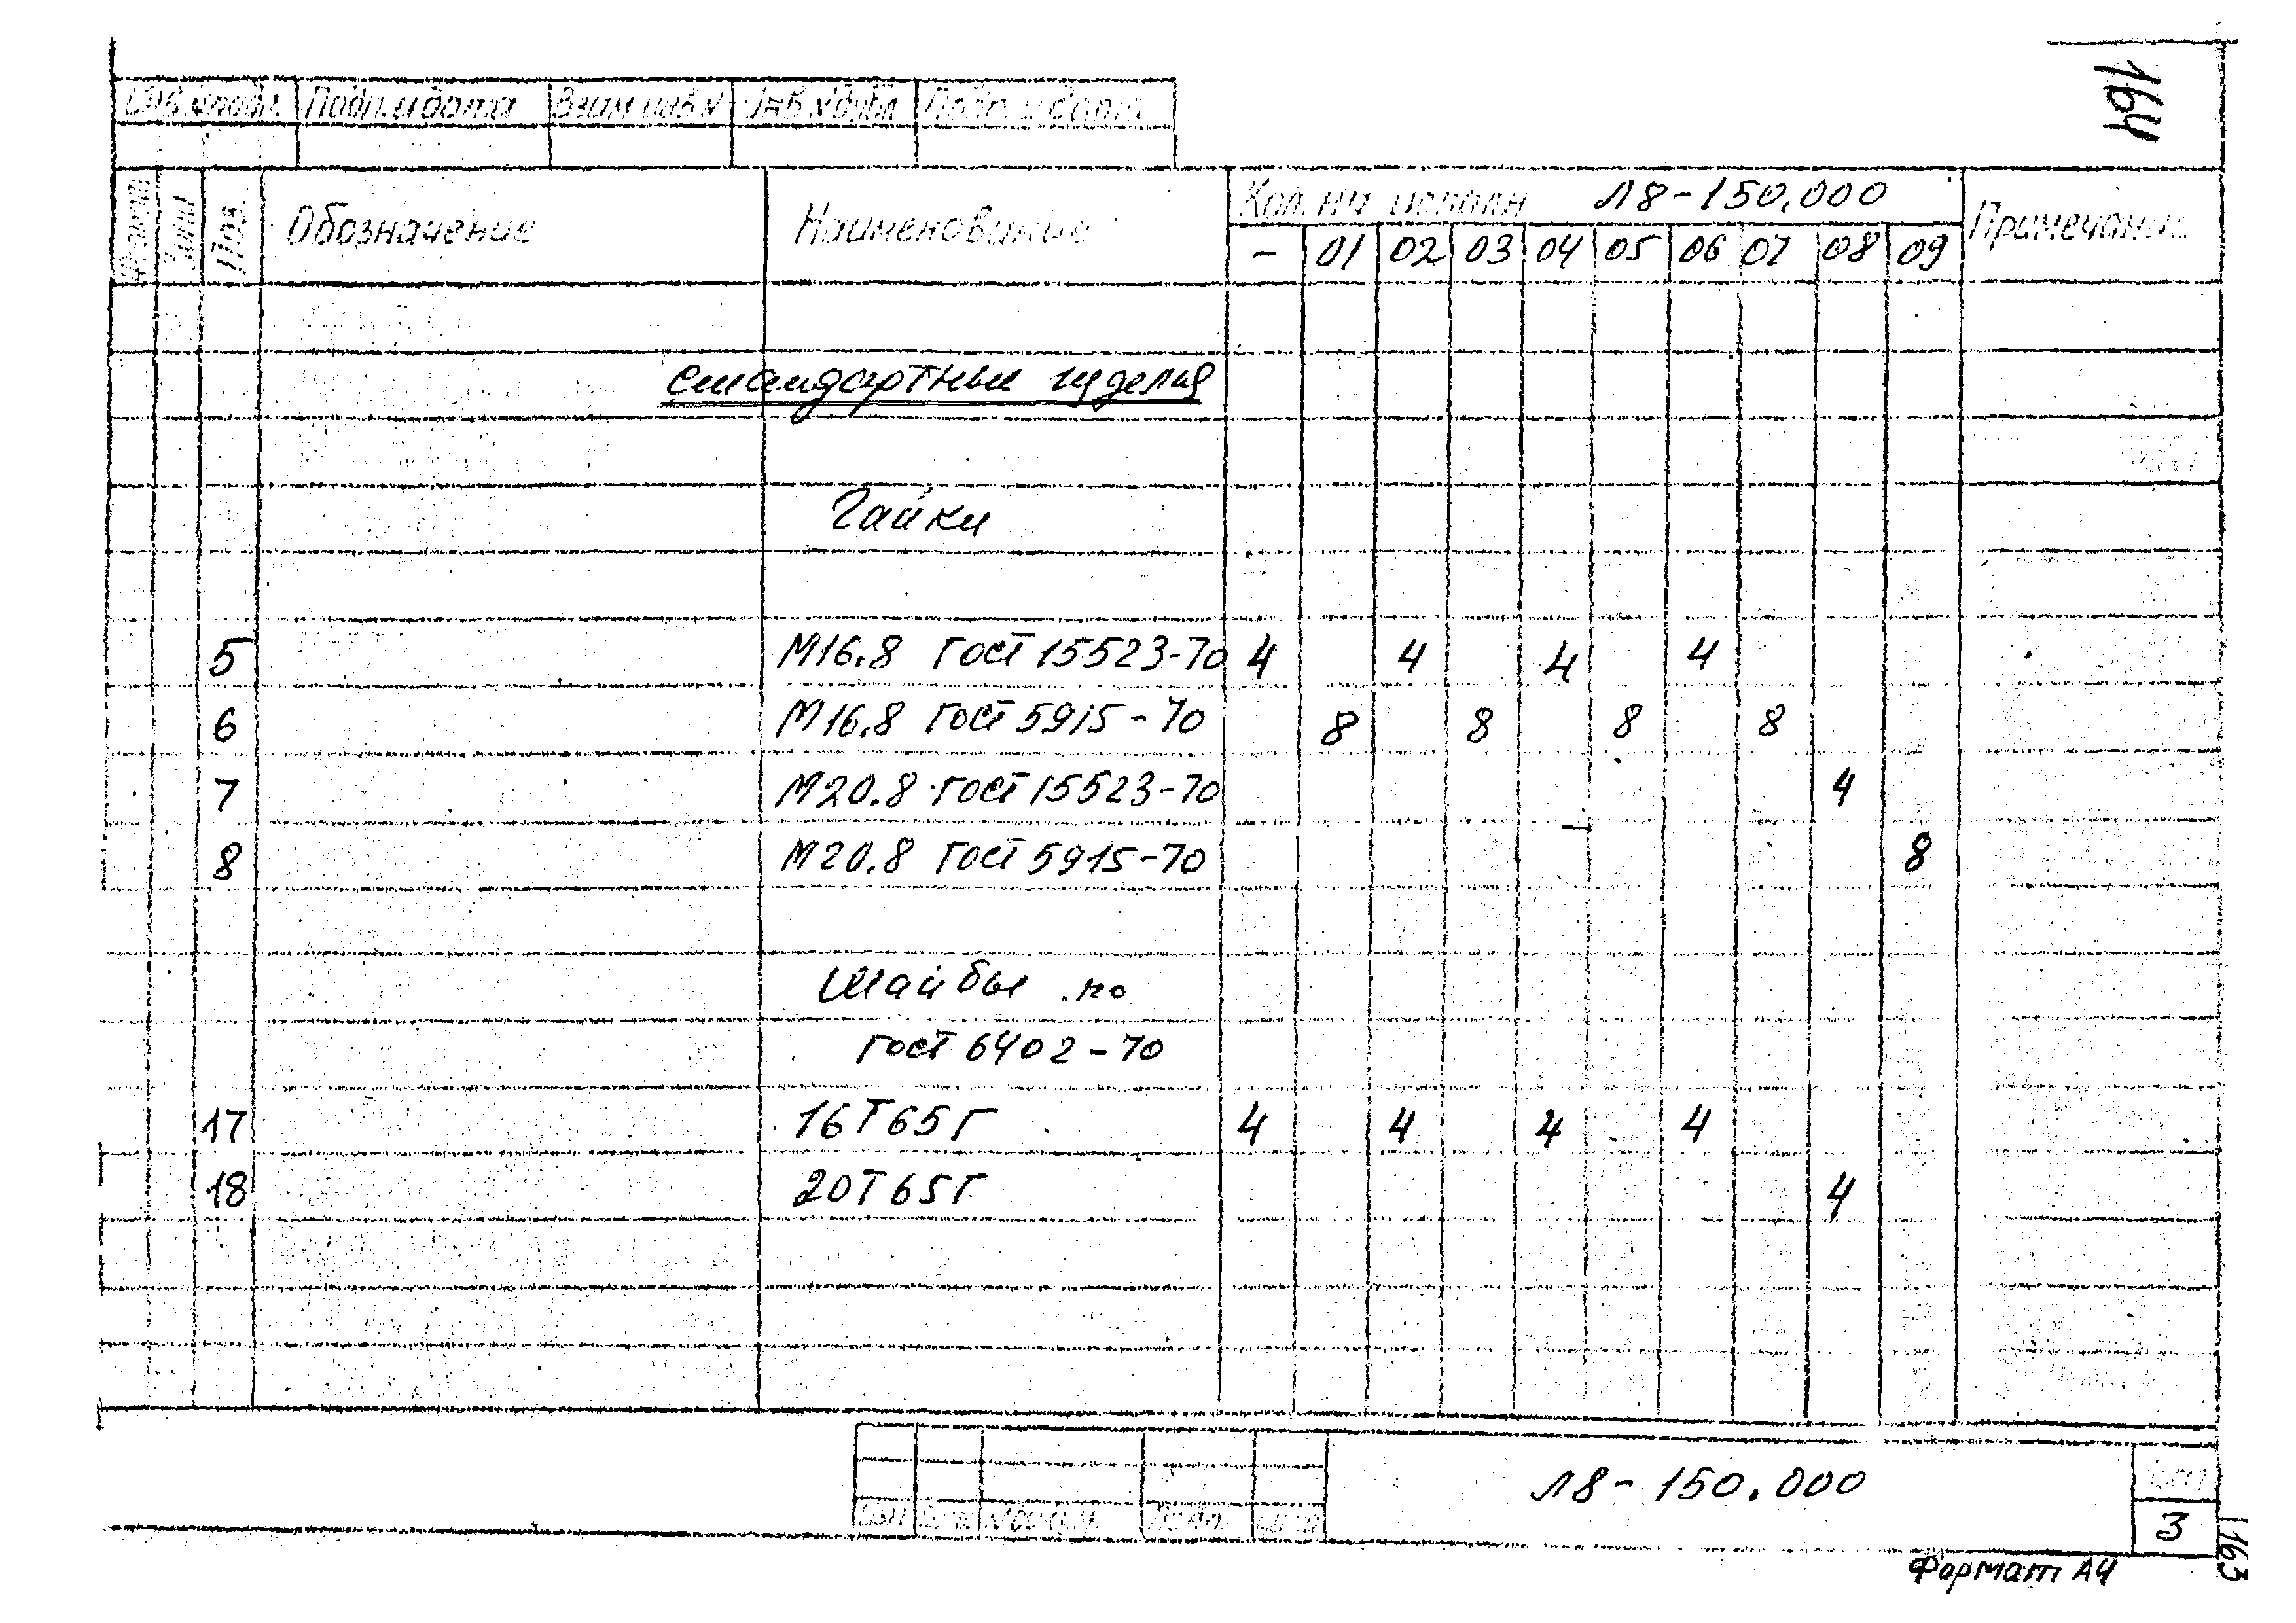 164
Инв.№подл. Подп. и дата Взам инв.№ Инв.№дубл Подп. и дата
Формат Зона Поз. Обозначение Наименование Кол. на исполн Л8-150.000 Примечание
- 01 02 03 04 05 06 07 08 09
Стандартные изделия
Гайки
5 М16.8 ГОСТ 15523-70 4 4 4 4
6 М16.8 ГОСТ 5915-70 8 8 8 8
7 М20.8 ГОСТ 15523-70 4
8 М20.8 ГОСТ 5915-70 8
Шайбы по
ГОСТ 6402-70
17 16Т65Г 4 4 4 4
18 20Т65Г 4
Л8-150.000
Изм Лист № докум. Подп. Дата
Лист
3
Формат А4
163